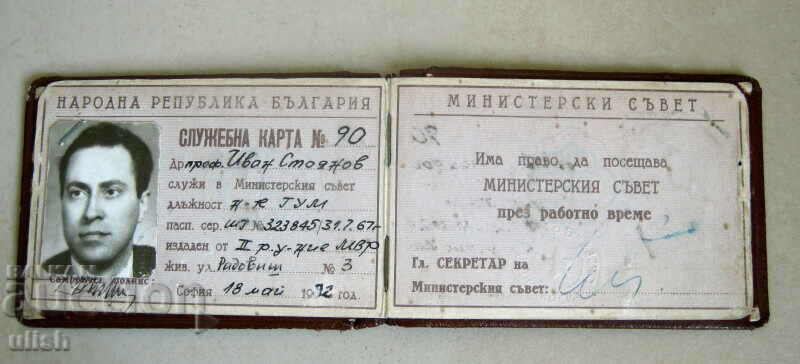 НАРОДНА РЕПУБЛИКА БЪЛГАРИЯ
СЛУЖЕБНА КАРТА № 90
Др. проф. Иван Стоянов
служи в Министерския съвет
длъжност н-к ГУМ
пасп. сер. № 323845/31.7.67г
издаден от II р.у-ние МВР
жив. ул. Радовиш № 3
Саморъчен подпис:
София 18 май 1972 год.
МИНИСТЕРСКИ СЪВЕТ
Има право да посещава
МИНИСТЕРСКИЯ СЪВЕТ
през работно време
Гл. СЕКРЕТАР на
Министерския съвет:
BALKAN
auction
ulish
ulish